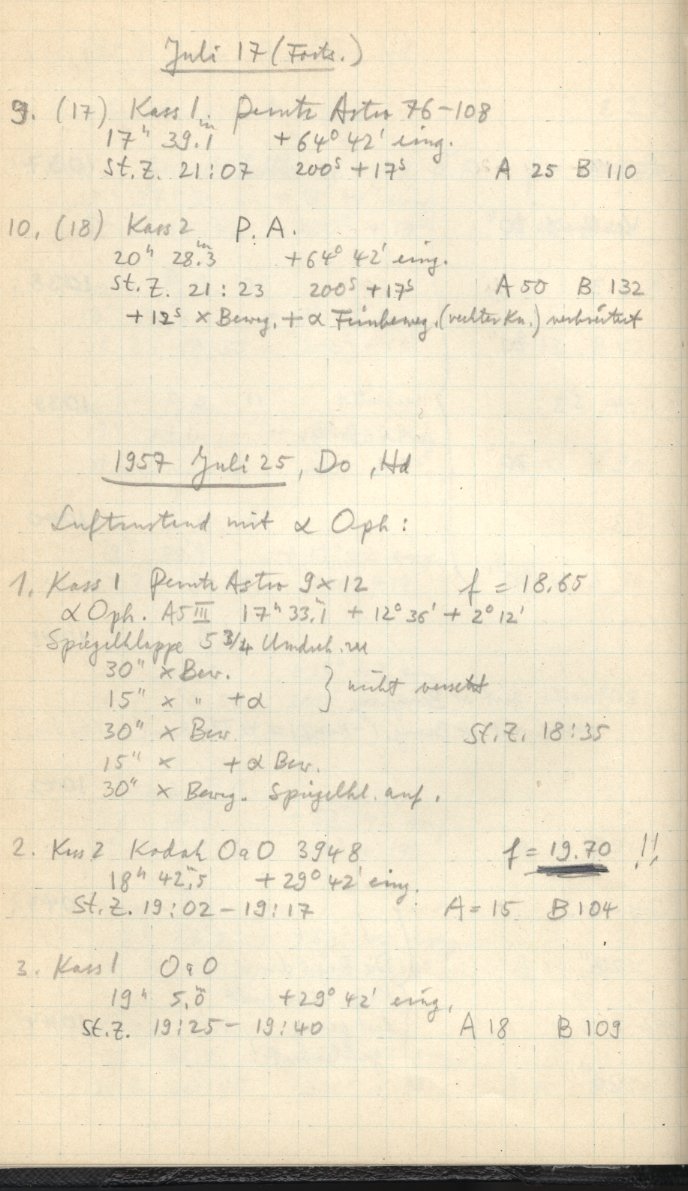 Juli 17 (Forts.)
9. (17) Kass 1. Perutz Astro 76-108
17ʰ 39.ᵐ1 +64° 42' eing.
St.Z. 21:07 200ˢ +17ˢ A 25 B 110
10. (18) Kass 2 P.A.
20ʰ 28.ᵐ3 +64° 42' eing.
St.Z. 21:23 200ˢ +17ˢ A 50 B 132
+12ˢ x Beweg. + α Feinbeweg. (rechter Kn.) verbreitert
1957 Juli 25, Do, Hd
Luftzustand mit α Oph:
1. Kass 1 Perutz Astro 9x12 f = 18.65
α Oph. A5 III 17ʰ 33.ᵐ1 + 12° 36' + 2° 12'
Spiegelklappe 5 3/4 Umdreh. zu
30" x Bew.
15" x " +α } nicht versetzt
30" x Bew. St.Z. 18:35
15" x +α Bew.
30" x Beweg. Spiegelkl. auf.
2. Kass 2 Kodak OaO 3948 f = 19.70 !!
18ʰ 42.ᵐ5 +29° 42' eing.
St.Z. 19:02 - 19:17 A = 15 B 104
3. Kass 1 OaO
19ʰ 5.ᵐ0 +29° 42' eing.
St.Z. 19:25 - 19:40 A 18 B 109